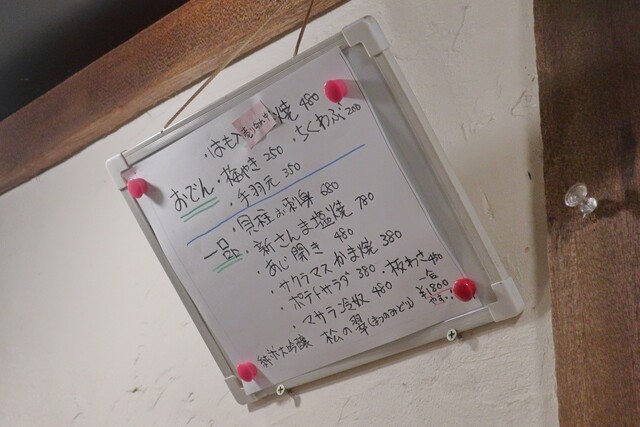 ・はも入 売り切れ中 焼 480
おでん ・梅やき 250 ・ちくわぶ 200
・手羽元 350
一品 ・貝柱お刺身 680
・新さんま塩焼 780
・あじ開き 480
・サクラマスかま焼 380
・ポテトサラダ 380 ・板わさ 480
・マサラ冷奴 480
純米大吟醸 松の翠(まつのみどり) 一合 ¥1,800 やすい